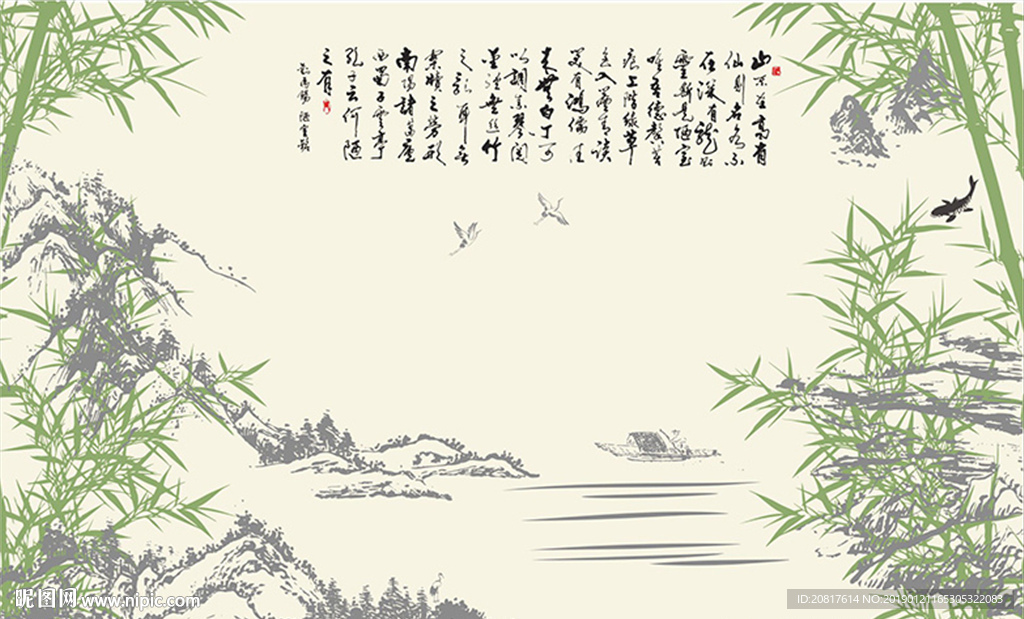 山不在高有
仙則名水不
在深有龍則
靈斯是陋室
惟吾德馨苔
痕上階綠草
色入簾青談
笑有鴻儒往
來無白丁可
以調素琴閱
金經無絲竹
之亂耳無
案牘之勞形
南陽諸葛廬
西蜀子雲亭
孔子云何陋
之有
劉禹錫 陋室銘
昵图网 www.nipic.com
ID:20817614 NO:20190121165305322083